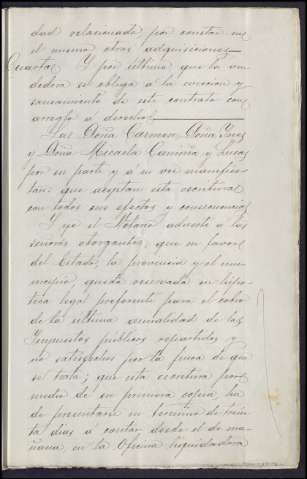 dad relacionada por constar en
el mismo otras adquisiciones
Cuarta: Y por última que la ven
dedora se obliga a la evicción y
saneamiento de este contrato con
arreglo a derecho
Las Doña Carmen, Doña Ines
y Doña Micaela Camiña y
por su parte y a su vez manifies-
tan: que aceptan esta escritura
con todos sus efectos y consecuencias
Y yo el Notario advierto a los
señores otorgantes, que a favor
del Estado, la provincia y el mu-
nicipio, queda reservada su hipo-
teca legal preferente para el cobro
de la última anualidad de los
Impuestos públicos repartidos y
no satisfechos por la finca de que
se trata; que esta escritura por
medio de su primera copia, ha
de presentarse en término de trein
ta días a contar desde el de ma-
ñana, en la Oficina liquidadora